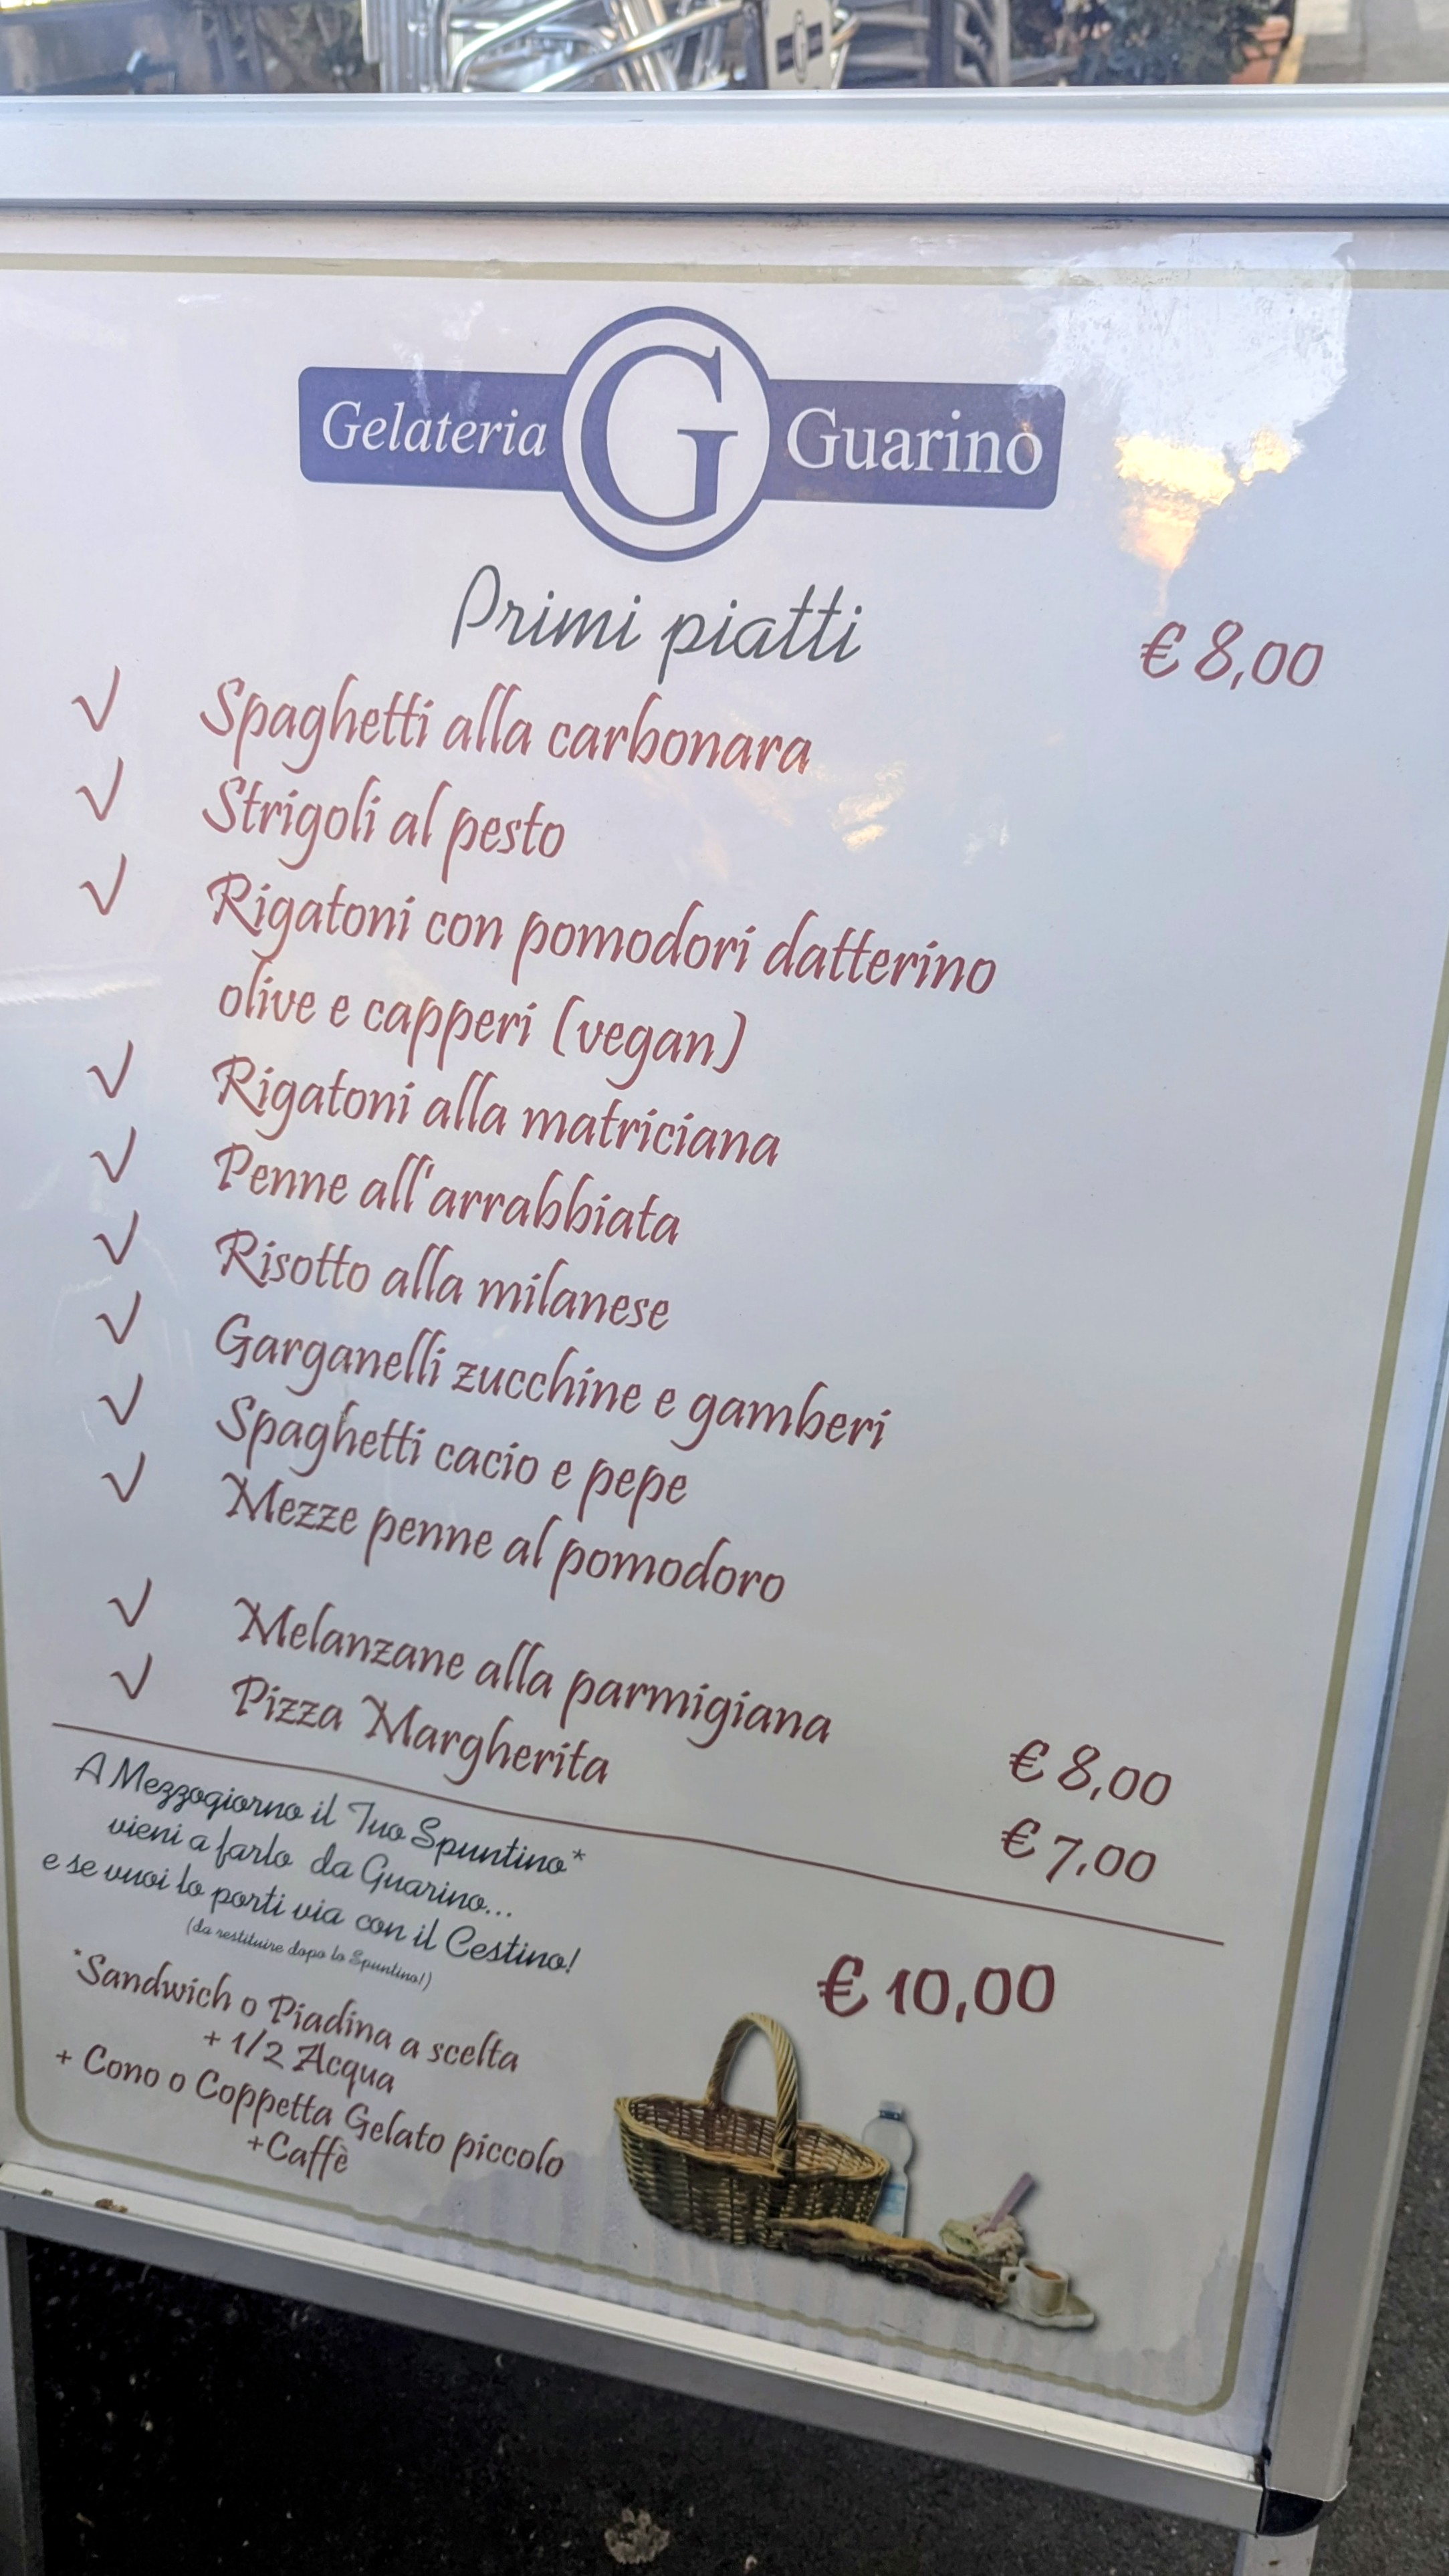 Gelateria G Guarino
Primi piatti € 8,00
√ Spaghetti alla carbonara
√ Strigoli al pesto
√ Rigatoni con pomodori datterino
olive e capperi (vegan)
√ Rigatoni alla matriciana
√ Penne all'arrabbiata
√ Risotto alla milanese
√ Garganelli zucchine e gamberi
√ Spaghetti cacio e pepe
√ Mezze penne al pomodoro
√ Melanzane alla parmigiana € 8,00
√ Pizza Margherita € 7,00
A Mezzogiorno il Tuo Spuntino*
vieni a farlo da Guarino...
e se vuoi lo porti via con il Cestino!
(da restituire dopo lo Spuntino!)
€ 10,00
*Sandwich o Piadina a scelta
+ 1/2 Acqua
+ Cono o Coppetta Gelato piccolo
+Caffè